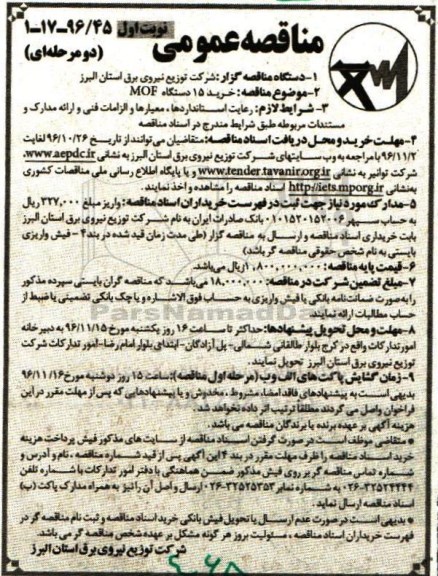 نوبت اول ۹۶/۴۵-۱۷-۱
مناقصه عمومی (دو مرحله‌ای)
۱- دستگاه مناقصه گزار: شرکت توزیع نیروی برق استان البرز
۲- موضوع مناقصه: خرید ۱۵ دستگاه MOF
۳- شرایط لازم: رعایت استانداردها، معیارها و الزامات فنی و ارائه مدارک و
مستندات مربوطه طبق شرایط مندرج در اسناد مناقصه
۴- مهلت خرید و محل دریافت اسناد مناقصه: متقاضیان می‌توانند از تاریخ ۹۶/۱۰/۲۶ لغایت
۹۶/۱۱/۲ با مراجعه به وب سایتهای شرکت توزیع نیروی برق استان البرز به نشانی www.aepdc.ir،
شرکت توانیر به نشانی www.tender.tavanir.org.ir و یا پایگاه اطلاع رسانی ملی مناقصات کشوری
به‌نشانی http://iets.mporg.ir اسناد مناقصه را مشاهده و اخذ نمایند.
۵- مدارک مورد نیاز جهت ثبت در فهرست خریداران اسناد مناقصه: واریز مبلغ ۳۲۷,۰۰۰ ریال
به حساب سپهر ۰۱۰۱۵۲۰۱۵۲۰۰۶ بانک صادرات ایران به نام شرکت توزیع نیروی برق استان البرز
بابت خریداری اسناد مناقصه و ارسال به مناقصه گزار (طی مدت زمان قید شده در بند ۴ - فیش واریزی
بایستی به نام شخص حقوقی مناقصه گر باشد)
۶- قیمت پایه مناقصه: ۱,۸۰۰,۰۰۰,۰۰۰ ریال می‌باشد.
۷- مبلغ تضمین شرکت در مناقصه: ۱۸,۰۰۰,۰۰۰ می‌باشد که مناقصه گران بایستی سپرده مذکور
را به صورت ضمانت‌نامه بانکی یا فیش واریزی به حساب فوق الاشاره و یا چک بانکی تضمینی یا ضبط از
حساب مطالبات ارائه نمایند.
۸- مهلت و محل تحویل پیشنهادها: حداکثر تا ساعت ۱۶ روز یکشنبه مورخ ۹۶/۱۱/۱۵ به دبیرخانه
امور تدارکات واقع در کرج بلوار طالقانی شمالی- پل آزادگان- ابتدای بلوار امام رضا- امور تدارکات شرکت
توزیع نیروی برق استان البرز تحویل نمایند.
۹- زمان گشایش پاکت های الف و ب (مرحله اول مناقصه): ساعت ۱۵ روز دوشنبه مورخ ۹۶/۱۱/۱۶
بدیهی است به پیشنهادهای فاقد امضاء، مشروط، مخدوش و یا پیشنهادهایی که پس از مهلت مقرر در این
فراخوان واصل می گردند مطلقا ترتیب اثر داده نخواهد شد.
هزینه آگهی بر عهده برنده یا برندگان مناقصه می باشد.
* متقاضی موظف است در صورت گرفتن اسناد مناقصه از سایت های مذکور فیش پرداخت هزینه
خرید اسناد مناقصه را ظرف مهلت مقرر در بند ۴ این آگهی پس از قید شماره مناقصه، نام و آدرس و
شماره تماس مناقصه گر بر روی فیش مذکور ضمن هماهنگی با دفتر امور تدارکات با شماره تلفن
۰۲۶-۳۲۵۲۴۲۴۴ به شماره نمابر ۰۲۶-۳۲۵۲۵۳۵۳ ارسال و اصل آن را نیز به همراه مدارک پاکت (ب)
اسناد مناقصه ارسال نماید.
* بدیهی است در صورت عدم ارسال یا تحویل فیش بانکی خرید اسناد مناقصه و ثبت نام مناقصه گر در
فهرست خریداران اسناد مناقصه، مسئولیت بروز هر گونه مشکل بر عهده شخص مناقصه گر می باشد.
شرکت توزیع نیروی برق استان البرز
ParsNamadData